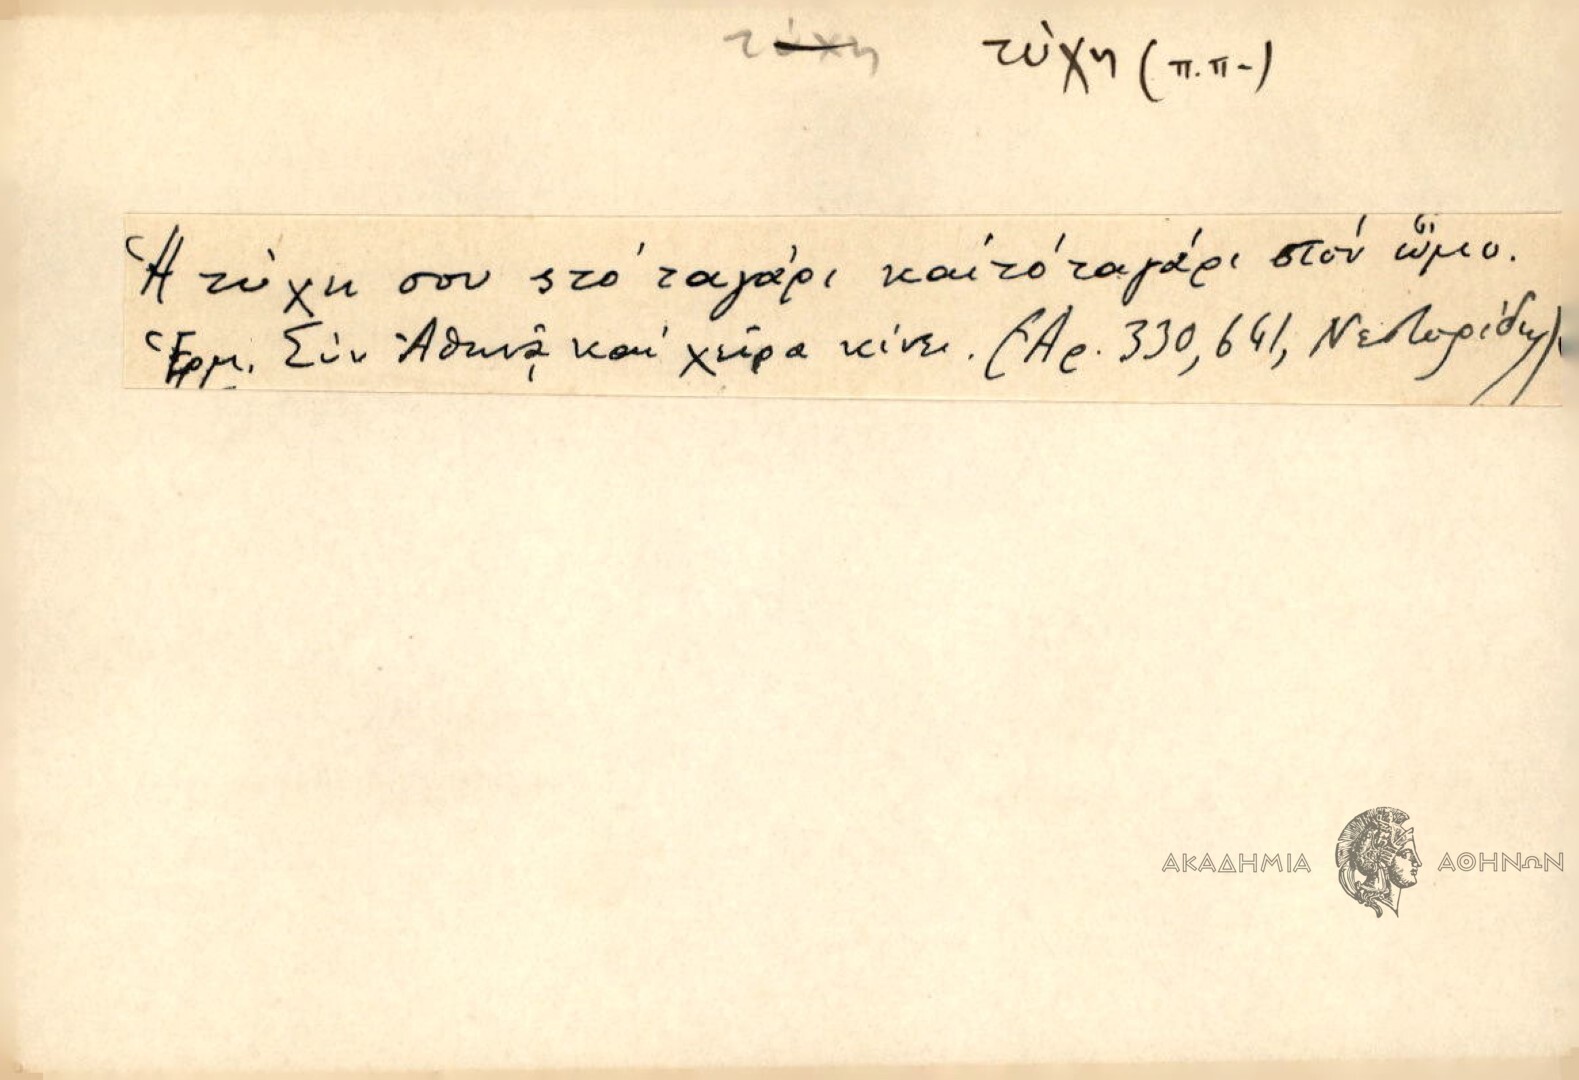 τύχη τύχη (π.π-)
Ἡ τύχη σου στό ταγάρι καί τό ταγάρι στόν ὦμο.
Ἑρμ. Σύν Ἀθηνᾷ καί χεῖρα κίνει. (Ἀρ. 330, 641, Νεστορίδης)
ΑΚΑΔΗΜΙΑ ΑΘΗΝΩΝ